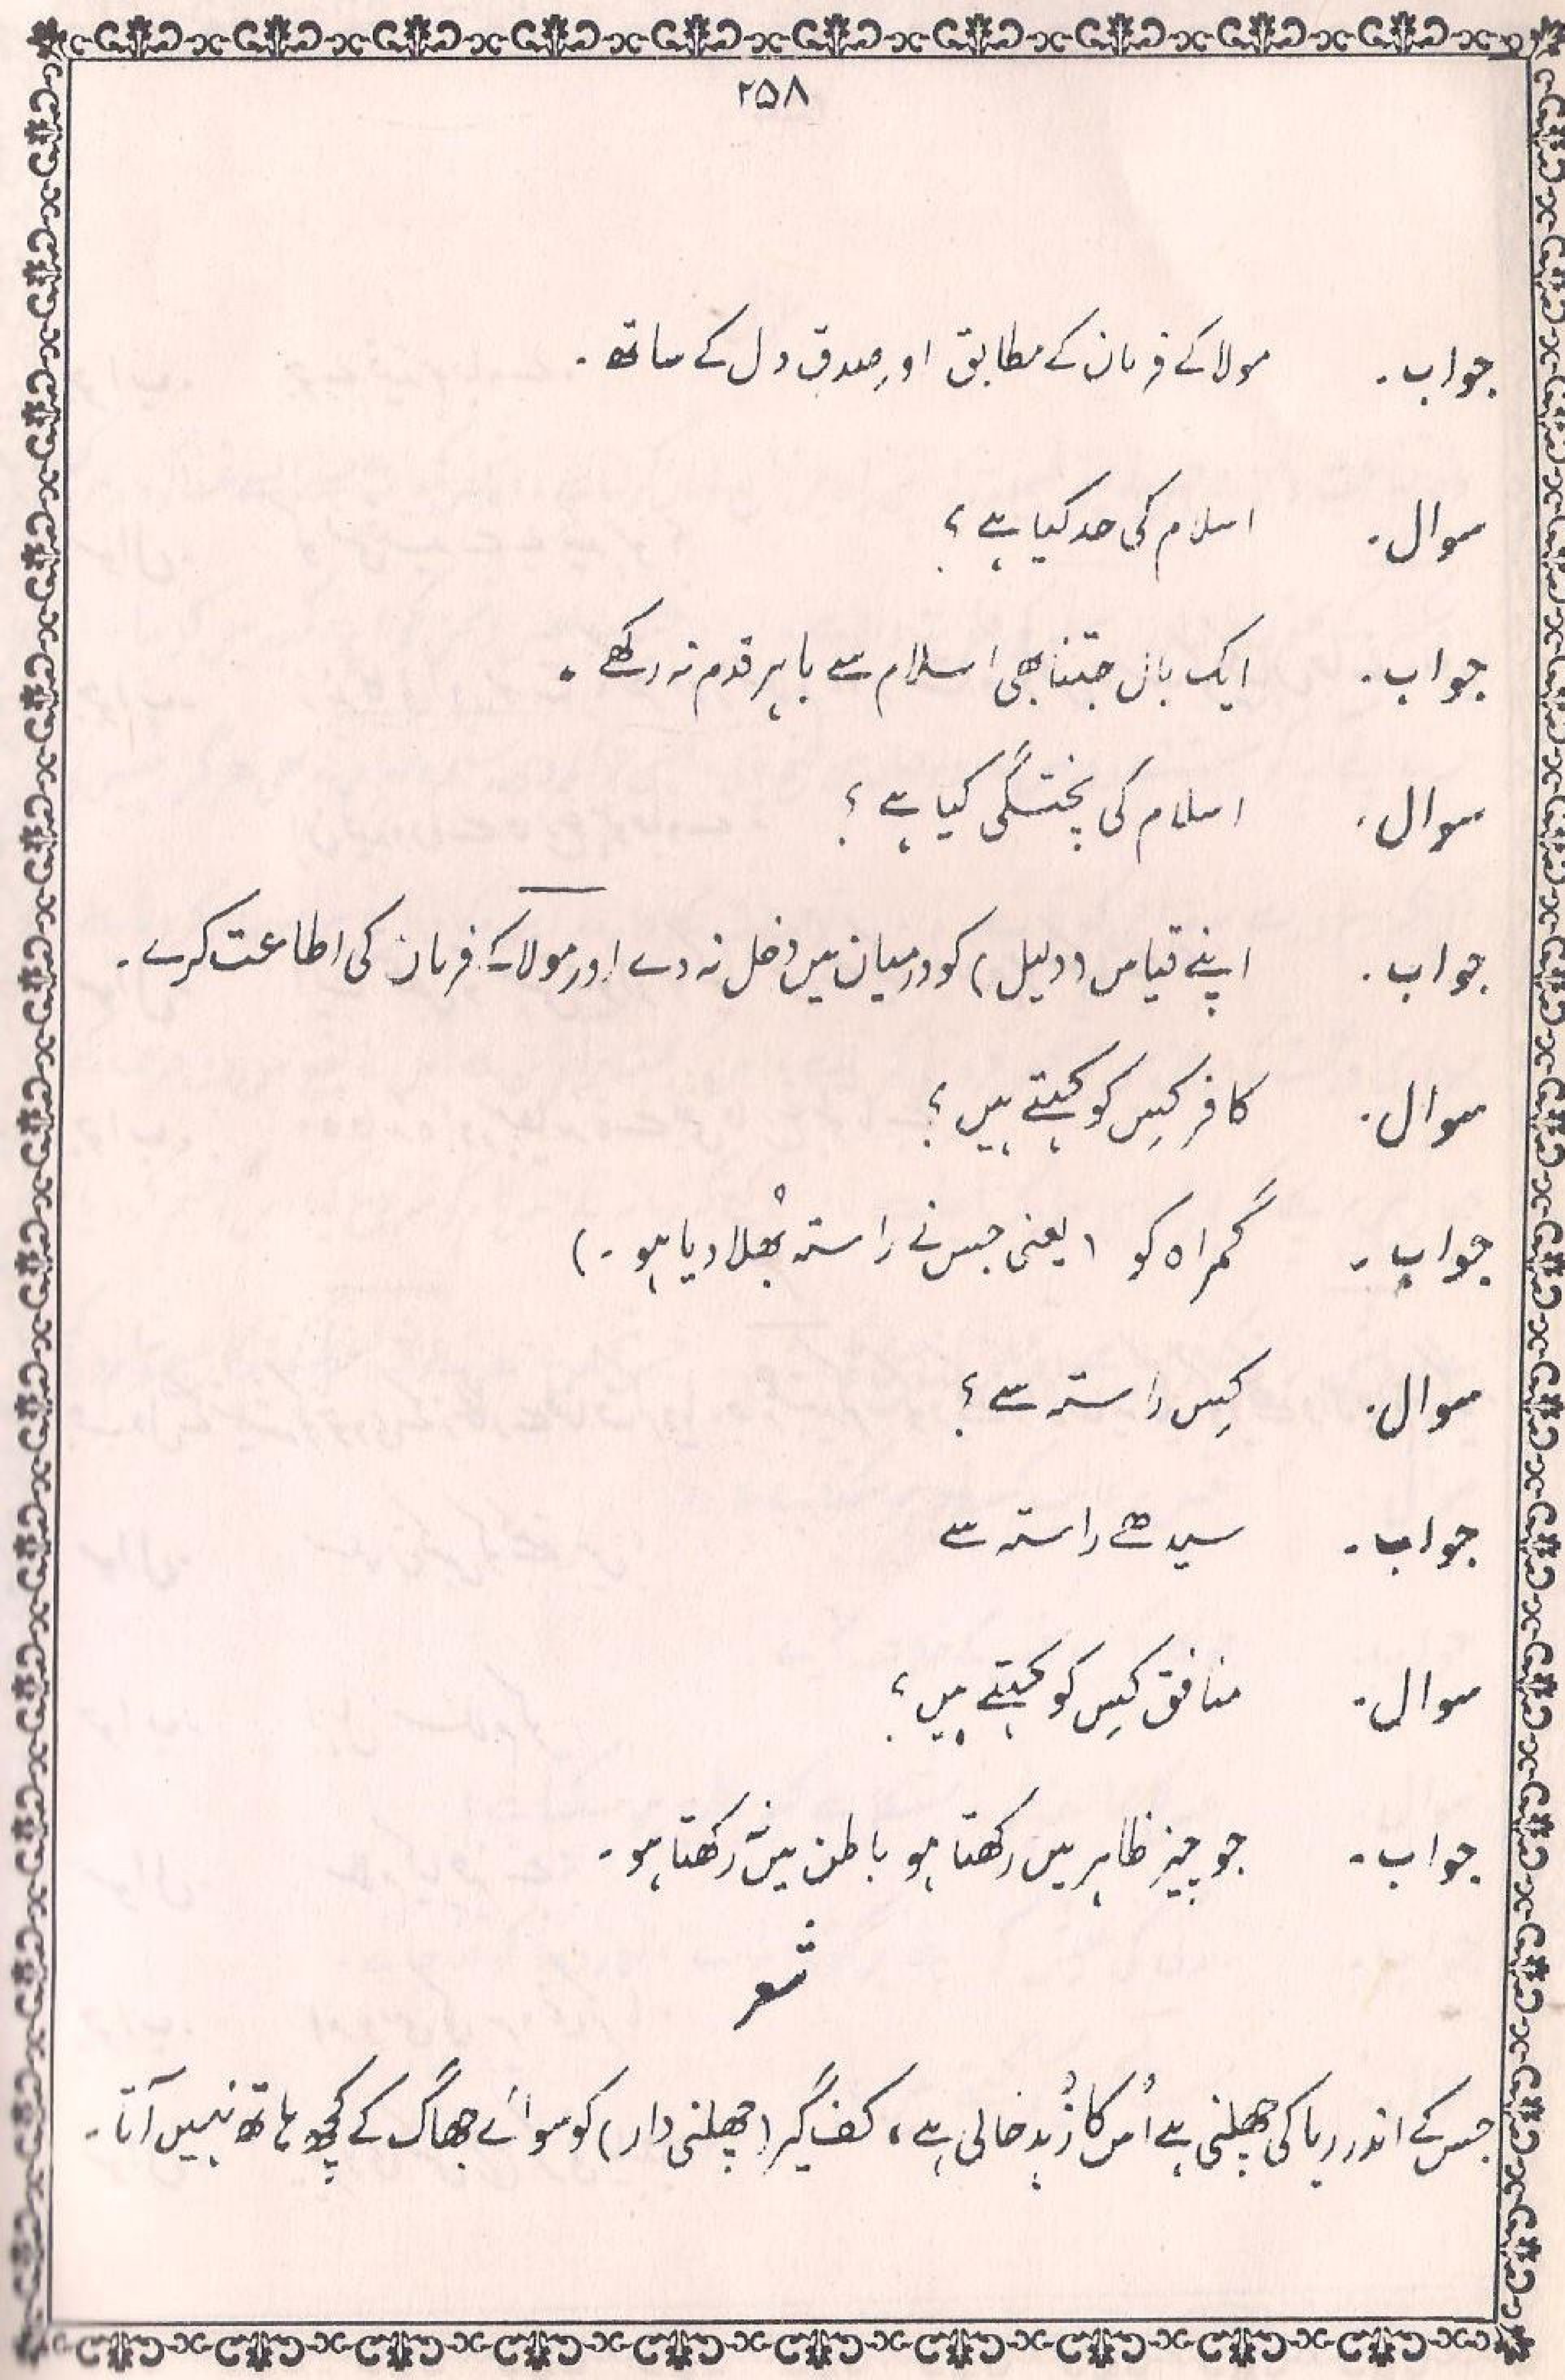 ۲۵۸
جواب۔ مولا کے فرمان کے مطابق اور صِدقِ دل کے ساتھ۔
سوال۔ اسلام کی حد کیا ہے؟
جواب۔ ایک بال جتنا بھی اسلام سے باہر قدم نہ رکھے۔
سوال۔ اسلام کی پختگی کیا ہے؟
جواب۔ اپنے قیاس (دلیل) کو درمیان میں دخل نہ دے اور مولا کے فرمان کی اطاعت کرے۔
سوال۔ کافر کِس کو کہتے ہیں؟
جواب۔ گمراہ کو (یعنی جس نے راستہ بُھلا دیا ہو۔)
سوال۔ کِس راستہ سے؟
جواب۔ سیدھے راستہ سے
سوال۔ منافق کِس کو کہتے ہیں؟
جواب۔ جو چیز ظاہر میں رکھتا ہو باطن میں نہ رکھتا ہو۔
شعر
جس کے اندر ریا کی چھلنی ہے اُس کا زُہد خالی ہے، کف گیر (چھلنی دار) کو سوائے جھاگ کے کچھ ہاتھ نہیں آتا۔